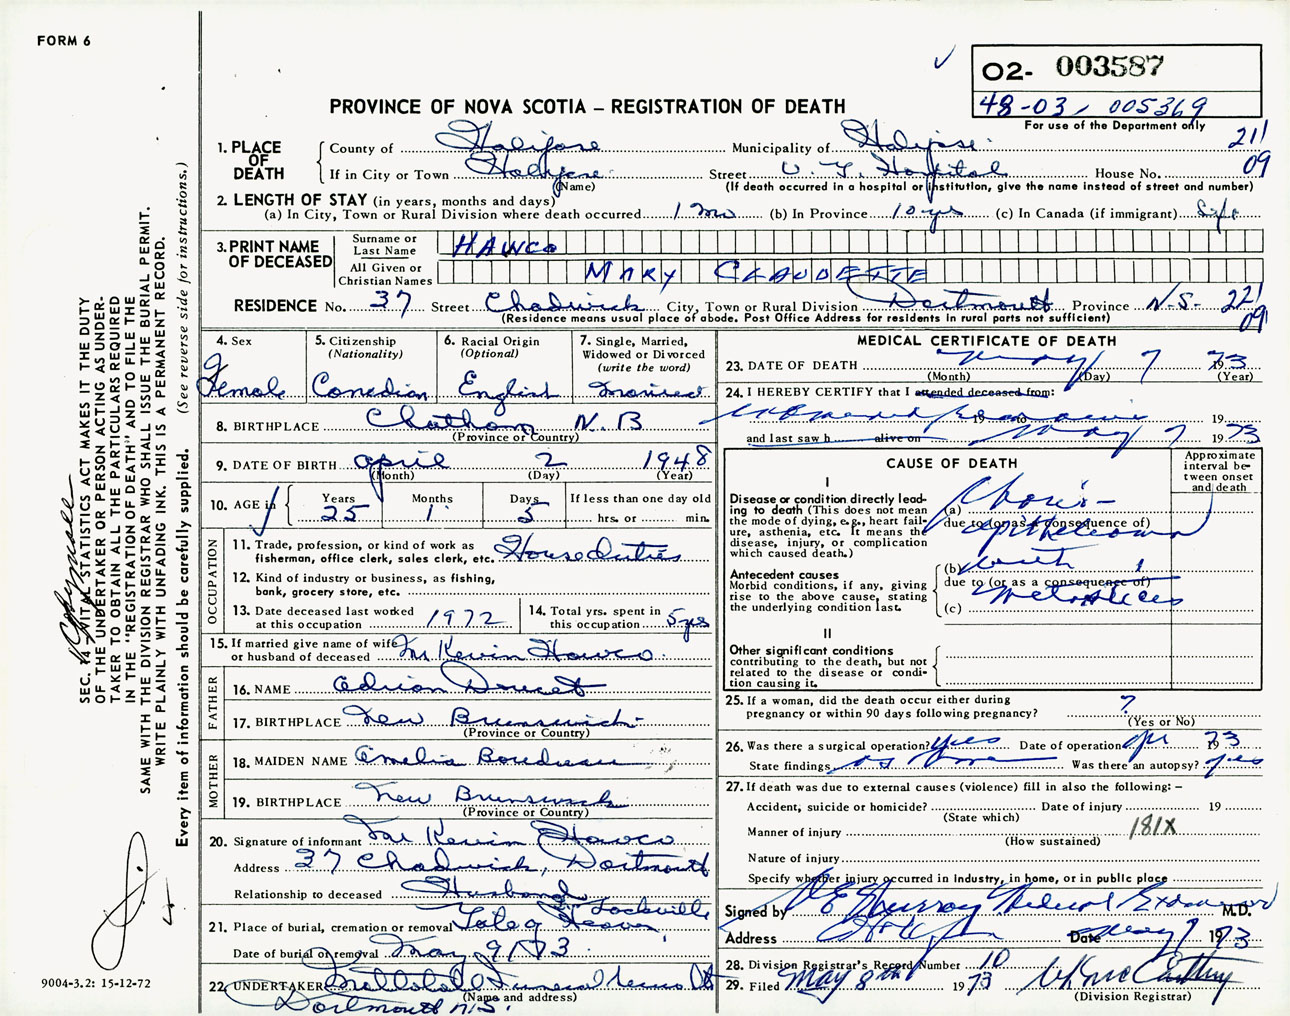 FORM 6
O2- 003587
48-03, 005369
For use of the Department only
PROVINCE OF NOVA SCOTIA – REGISTRATION OF DEATH
211
09
1. PLACE OF DEATH
County of Halifax Municipality of Halifax
If in City or Town Halifax Street V. G. Hospital House No.
(Name) (If death occurred in a hospital or institution, give the name instead of street and number)
2. LENGTH OF STAY (in years, months and days)
(a) In City, Town or Rural Division where death occurred 1 mo (b) In Province 10 yrs (c) In Canada (if immigrant)
3. PRINT NAME OF DECEASED
Surname or Last Name HAWCO
All Given or Christian Names MARY CLAUDETTE
RESIDENCE No. 37 Street Chadwick City, Town or Rural Division Dartmouth Province N.S. 221
09
(Residence means usual place of abode. Post Office Address for residents in rural parts not sufficient)
4. Sex
Female
5. Citizenship (Nationality)
Canadian
6. Racial Origin (Optional)
English
7. Single, Married, Widowed or Divorced (write the word)
Married
8. BIRTHPLACE Chatham N.B
(Province or Country)
9. DATE OF BIRTH April 2 1948
(Month) (Day) (Year)
10. AGE in Years Months Days If less than one day old
25 1 5 hrs. or min.
OCCUPATION
11. Trade, profession, or kind of work as
fisherman, office clerk, sales clerk, etc. House duties
12. Kind of industry or business, as fishing,
bank, grocery store, etc.
13. Date deceased last worked
at this occupation 1972
14. Total yrs. spent in
this occupation 5 yrs
15. If married give name of wife
or husband of deceased Mr Kevin Hawco
FATHER
16. NAME Adrian Doucet
17. BIRTHPLACE New Brunswick
(Province or Country)
MOTHER
18. MAIDEN NAME Amelia Boudreau
19. BIRTHPLACE New Brunswick
(Province or Country)
20. Signature of informant Mr Kevin Hawco
Address 37 Chadwick, Dartmouth
Relationship to deceased Husband
21. Place of burial, cremation or removal Sackville
Date of burial or removal May 9/73
22. UNDERTAKER Funeral Home Lt
(Name and address)
Dartmouth N.S.
MEDICAL CERTIFICATE OF DEATH
23. DATE OF DEATH May 7 1973
(Month) (Day) (Year)
24. I HEREBY CERTIFY that I attended deceased from:
19 to 19
and last saw h alive on May 7 1973
CAUSE OF DEATH
Approximate interval between onset and death
I
Disease or condition directly lead-
ing to death (This does not mean
the mode of dying, e.g., heart fail-
ure, asthenia, etc. It means the
disease, injury, or complication
which caused death.)
(a) Chorio-
due to (or as a consequence of)
epithelioma
Antecedent causes
Morbid conditions, if any, giving
rise to the above cause, stating
the underlying condition last.
(b) with
due to (or as a consequence of)
metastases
(c)
II
Other significant conditions
contributing to the death, but not
related to the disease or condi-
tion causing it.
25. If a woman, did the death occur either during
pregnancy or within 90 days following pregnancy? ?
(Yes or No)
26. Was there a surgical operation? yes Date of operation Apr 1973
State findings as above Was there an autopsy? yes
27. If death was due to external causes (violence) fill in also the following: –
Accident, suicide or homicide? Date of injury 19
(State which)
Manner of injury 181X
(How sustained)
Nature of injury
Specify whether injury occurred in industry, in home, or in public place
Signed by Murray Medical Examiner M.D.
Address Halifax Date May 9 1973
28. Division Registrar's Record Number 10
29. Filed May 8th 1973
(Division Registrar)
SEC. 14 VITAL STATISTICS ACT MAKES IT THE DUTY
OF THE UNDERTAKER OR PERSON ACTING AS UNDER-
TAKER TO OBTAIN ALL THE PARTICULARS REQUIRED
IN THE "REGISTRATION OF DEATH" AND TO FILE THE
SAME WITH THE DIVISION REGISTRAR WHO SHALL ISSUE THE BURIAL PERMIT.
WRITE PLAINLY WITH UNFADING INK. THIS IS A PERMANENT RECORD.
Every item of information should be carefully supplied. (See reverse side for instructions.)
9004-3.2: 15-12-72